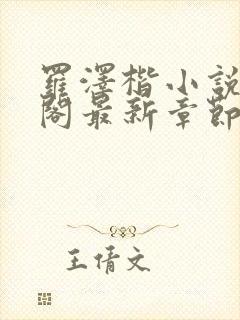 羅澤楷小說
閣最新章節
王倩文